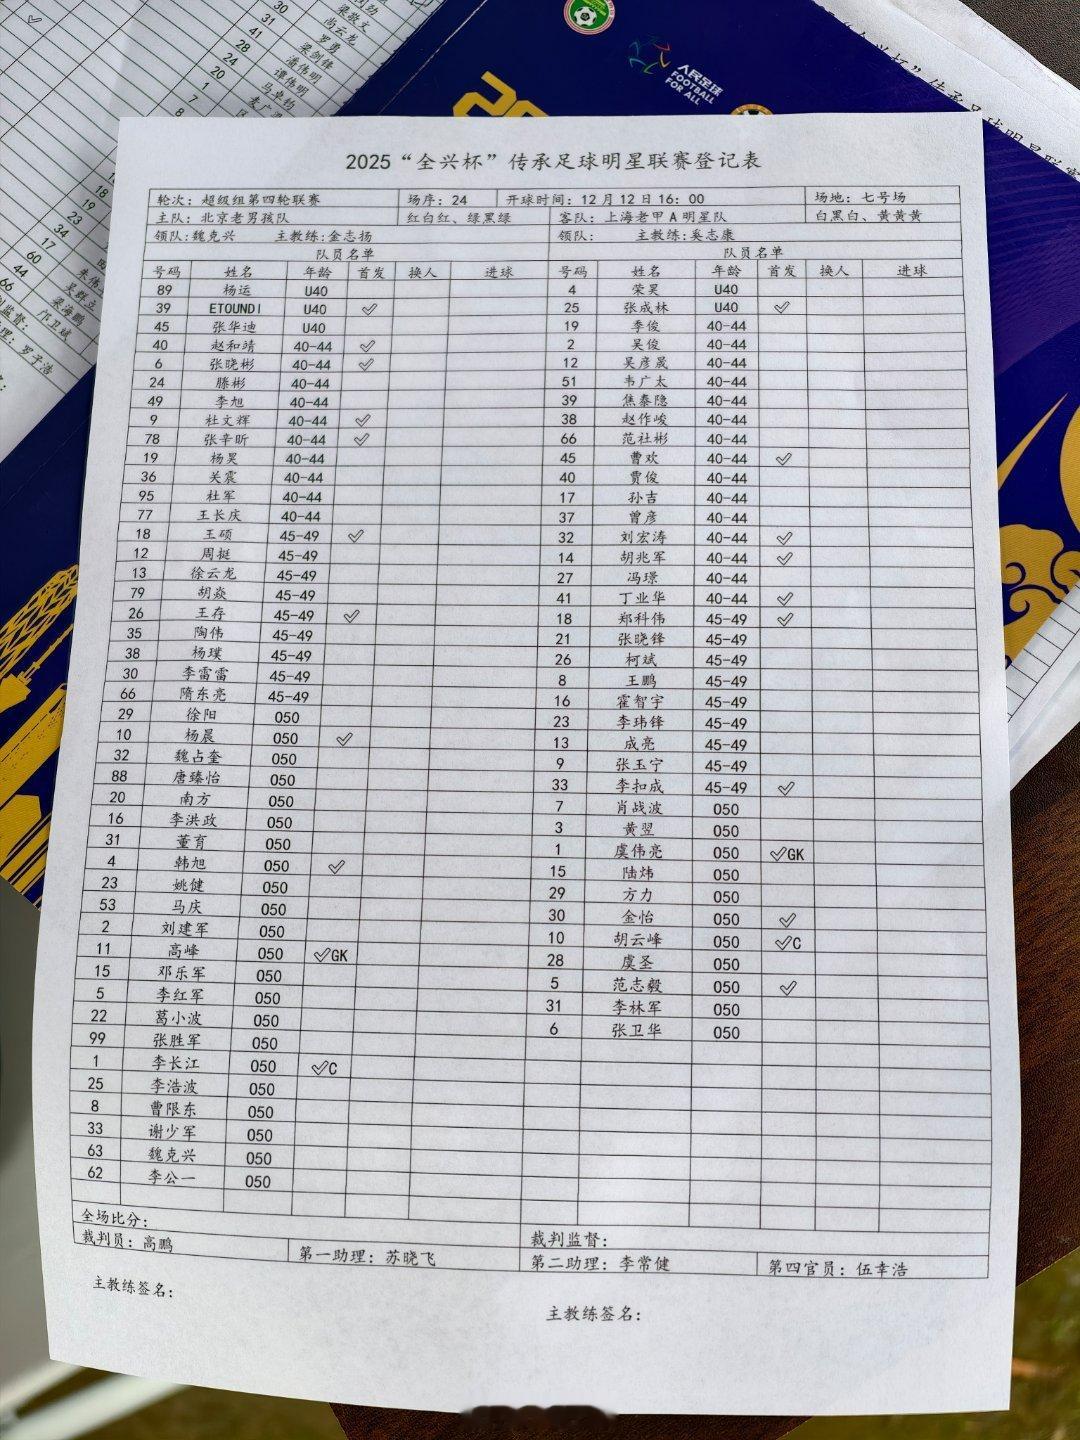 30
31
41
28
24
20
1
7
8
梁敖文
尚云龙
罗勇
梁剑锋
潘伟明
谭伟明
马卓钧
18
18
19
34
23
34
17
60
44
66
吴群立
梁海鹏
邝卫斌
罗子浩
人民足球
FOOTBALL
FOR ALL
2025“全兴杯”传承足球明星联赛登记表
轮次: 超级组第四轮联赛 场序: 24 开球时间: 12月12日16: 00 场地: 七号场
主队: 北京老男孩队 红白红、绿黑绿 客队: 上海老甲A明星队 白黑白、黄黄黄
领队:魏克兴 主教练:金志扬 领队: 主教练:奚志康
队员名单 队员名单
号码 姓名 年龄 首发 换人 进球 号码 姓名 年龄 首发 换人 进球
89 杨运 U40 4 荣昊 U40
39 ETOUNDI U40 ✓ 25 张成林 U40 ✓
45 张华迪 U40 19 季俊 40-44
40 赵和靖 40-44 ✓ 2 吴俊 40-44
6 张晓彬 40-44 ✓ 12 吴彦晟 40-44
24 滕彬 40-44 51 韦广太 40-44
49 李旭 40-44 39 焦泰隐 40-44
9 杜文辉 40-44 ✓ 38 赵作峻 40-44
78 张辛昕 40-44 ✓ 66 范社彬 40-44
19 杨昊 40-44 45 曹欢 40-44 ✓
36 关震 40-44 40 贾俊 40-44
95 杜军 40-44 17 孙吉 40-44
77 王长庆 40-44 37 曾彦 40-44
18 王硕 45-49 ✓ 32 刘宏涛 40-44 ✓
12 周挺 45-49 14 胡兆军 40-44 ✓
13 徐云龙 45-49 27 冯璟 40-44
79 胡焱 45-49 41 丁业华 40-44 ✓
26 王存 45-49 ✓ 18 郑科伟 45-49 ✓
35 陶伟 45-49 21 张晓锋 45-49
38 杨璞 45-49 26 柯斌 45-49
30 李雷雷 45-49 8 王鹏 45-49
66 隋东亮 45-49 16 霍智宇 45-49
29 徐阳 O50 23 李玮锋 45-49
10 杨晨 O50 ✓ 13 成亮 45-49
32 魏占奎 O50 9 张玉宁 45-49
88 唐臻怡 O50 33 李扣成 45-49 ✓
20 南方 O50 7 肖战波 O50
16 李洪政 O50 3 黄翌 O50
31 董育 O50 1 虞伟亮 O50 ✓GK
4 韩旭 O50 ✓ 15 陆炜 O50
23 姚健 O50 29 方力 O50
53 马庆 O50 30 金怡 O50 ✓
2 刘建军 O50 10 胡云峰 O50 ✓C
11 高峰 O50 ✓GK 28 虞圣 O50
15 邓乐军 O50 5 范志毅 O50 ✓
5 李红军 O50 31 李林军 O50
22 葛小波 O50 6 张卫华 O50
99 张胜军 O50
1 李长江 O50 ✓C
25 李浩波 O50
8 曹限东 O50
33 谢少军 O50
63 魏克兴 O50
62 李公一 O50
全场比分: 裁判监督:
裁判员: 高鹏 第一助理: 苏晓飞 第二助理: 李常健 第四官员: 伍幸浩
主教练签名: 主教练签名: